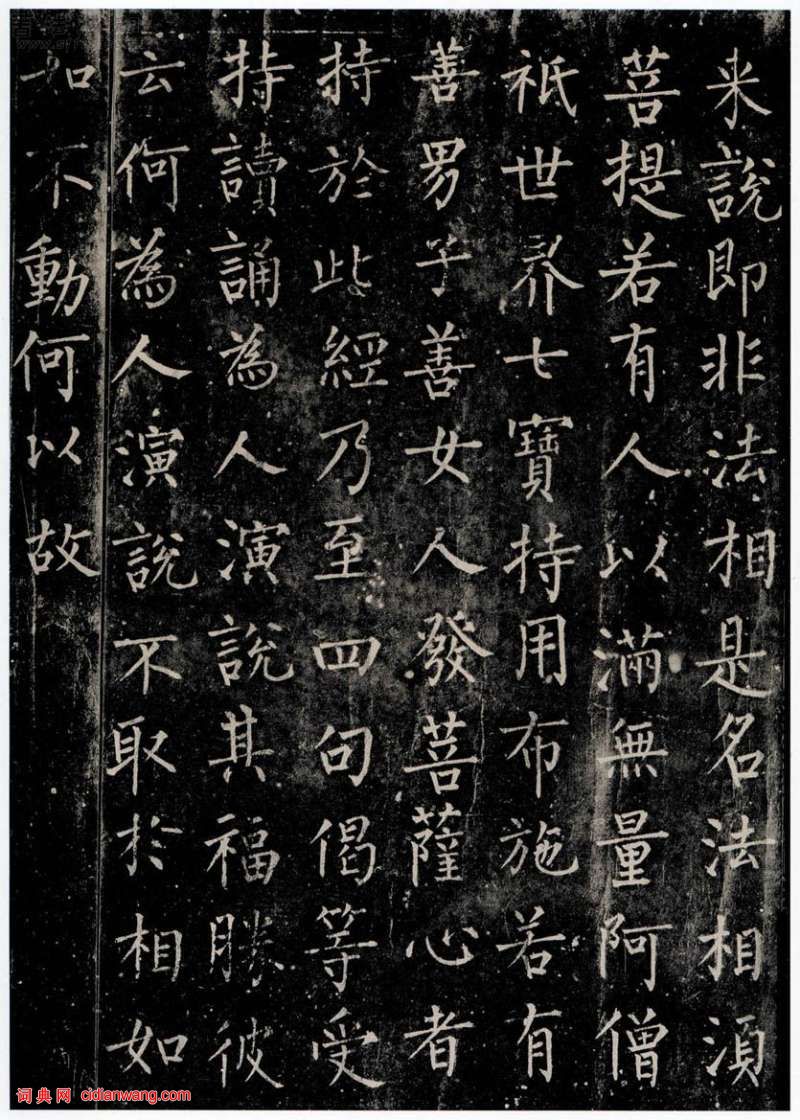 来說即非法相是名法相須
菩提若有人以滿無量阿僧
祇世界七寶持用布施若有
善男子善女人發菩薩心者
持於此經乃至四句偈等受
持讀誦為人演說其福勝彼
云何為人演說不取於相如
如不動何以故
词典网 cidianwang.com